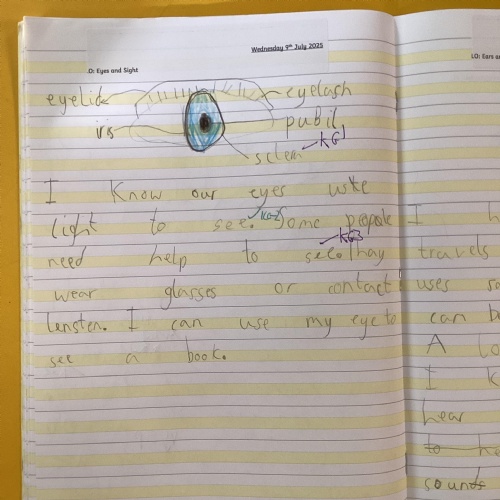 Wednesday 9th July 2025
LO: Ears a
.O: Eyes and Sight
eyelid eyelash
iris pubil
sclera KG1
I know our eyes use
light to see. KG2 Some people
need help to see. KG3 thay
wear glasses or contact
lensten. I can use my eye to
see a book.
I h
travels
uses so
can be
A lo
I k
hear
to he
sounds